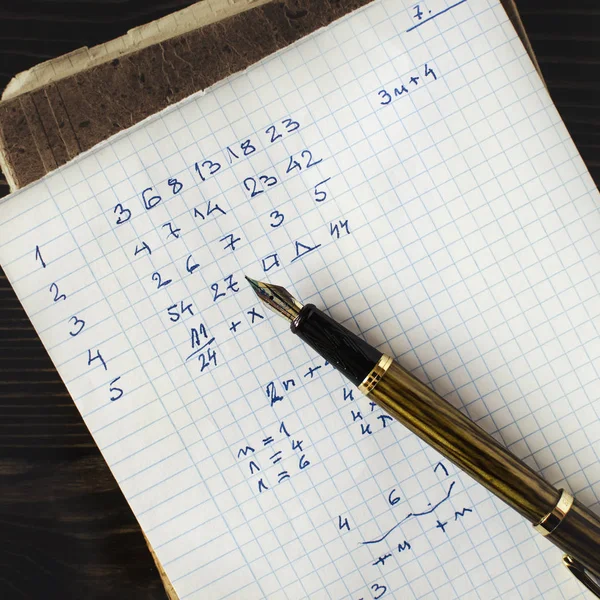 7.
3n+4
1 3 6 8 13 18 23
2 4 7 14 23 42
3 2 6 7 3 5
4 54 27 □ △ 44
5 11/24 + x
2n +
n = 1
n = 4
n = 6
4
4
4
4 6 . 7
+n +n
3